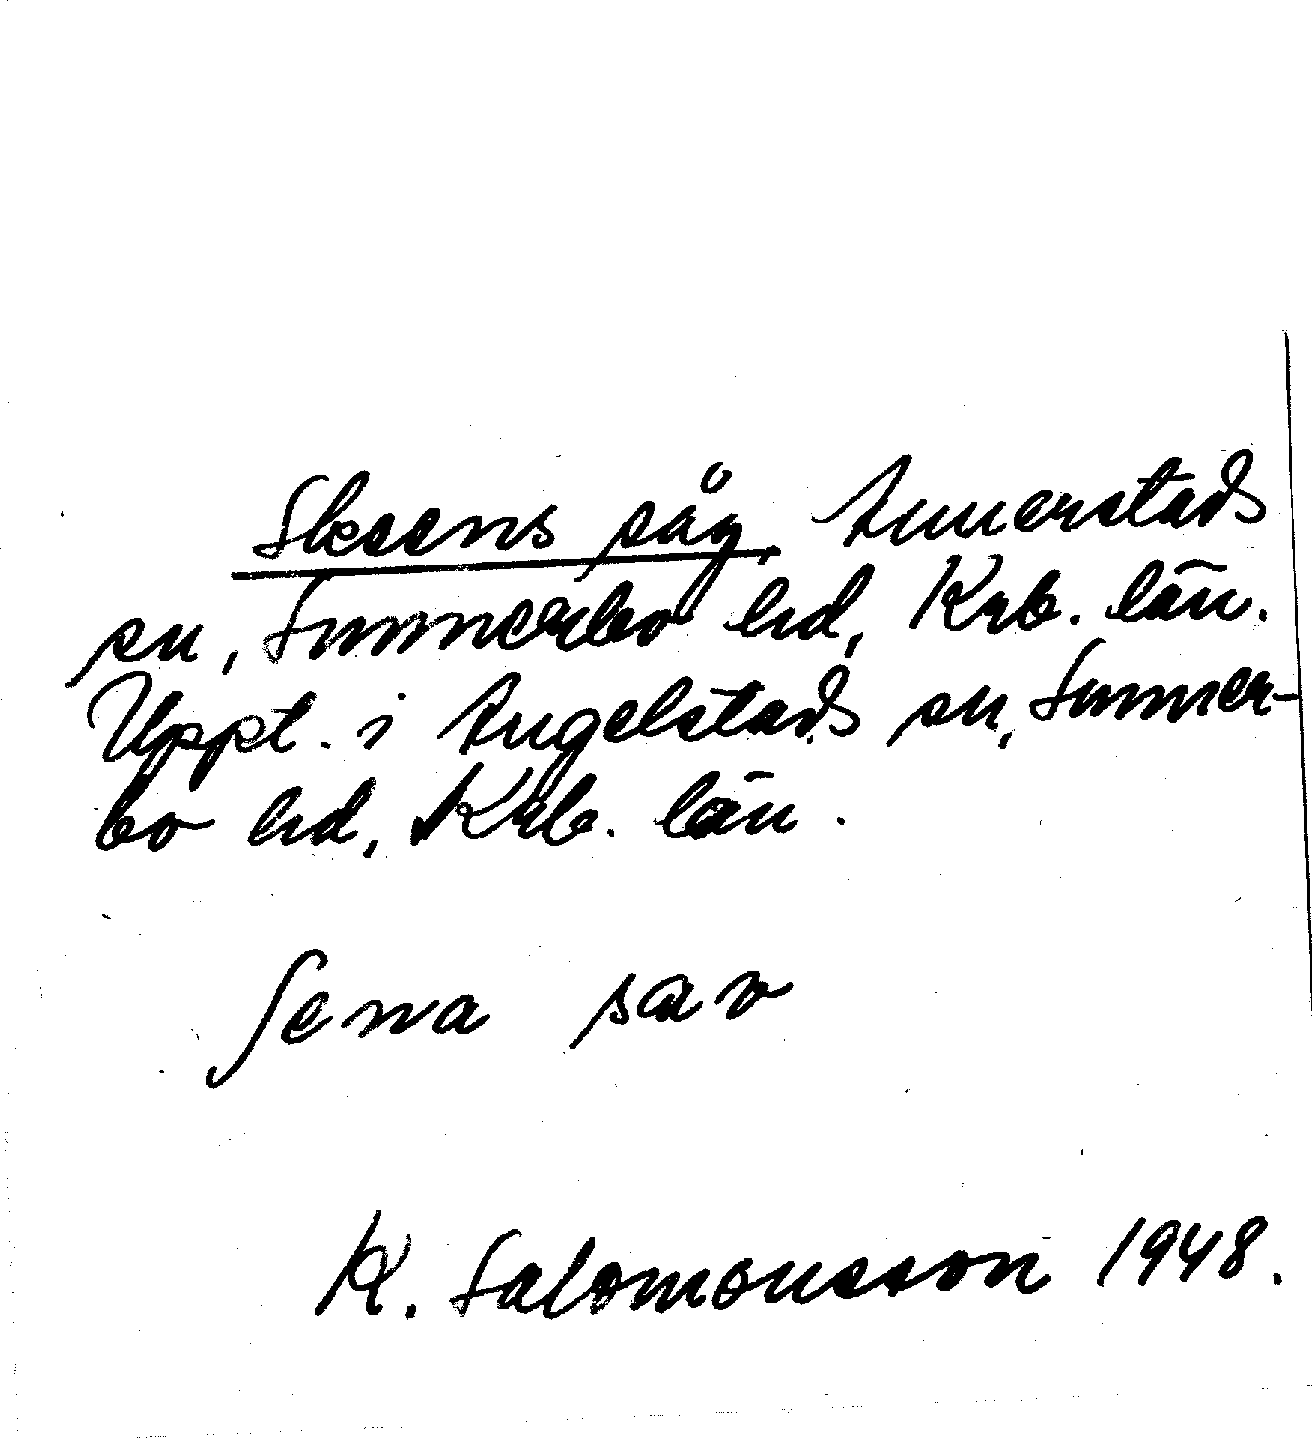 Skeens såg, Annerstads
sn, Sunnerbo hd, Krb. län.
Uppt. i Angelstads sn, Sunner-
bo hd, Krb. län.
sav
K. Salomonsson 1948.